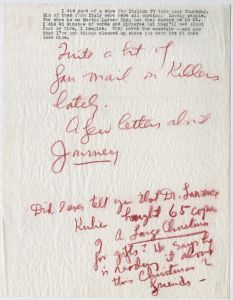 I did part of a show for Italian TV this past Thursday.
Six of them from Italy were here all morning. Lovely people.
The show is on Martin Luther King but they wanted me in it.
I did 45 minutes of words and pictures but they'll use about
four or five, I imagine. They loved the
that I've got things cleaned up since you were here it does
look nice.
Quite a bit of
fan mail on Killers
lately.
A few letters about
Journey
Did I ever tell you that Dr. Lawrence
Kubie bought 65 copies
of A Large Christmas
for gifts? He says he
is reading it about
this Christmas to
friends —